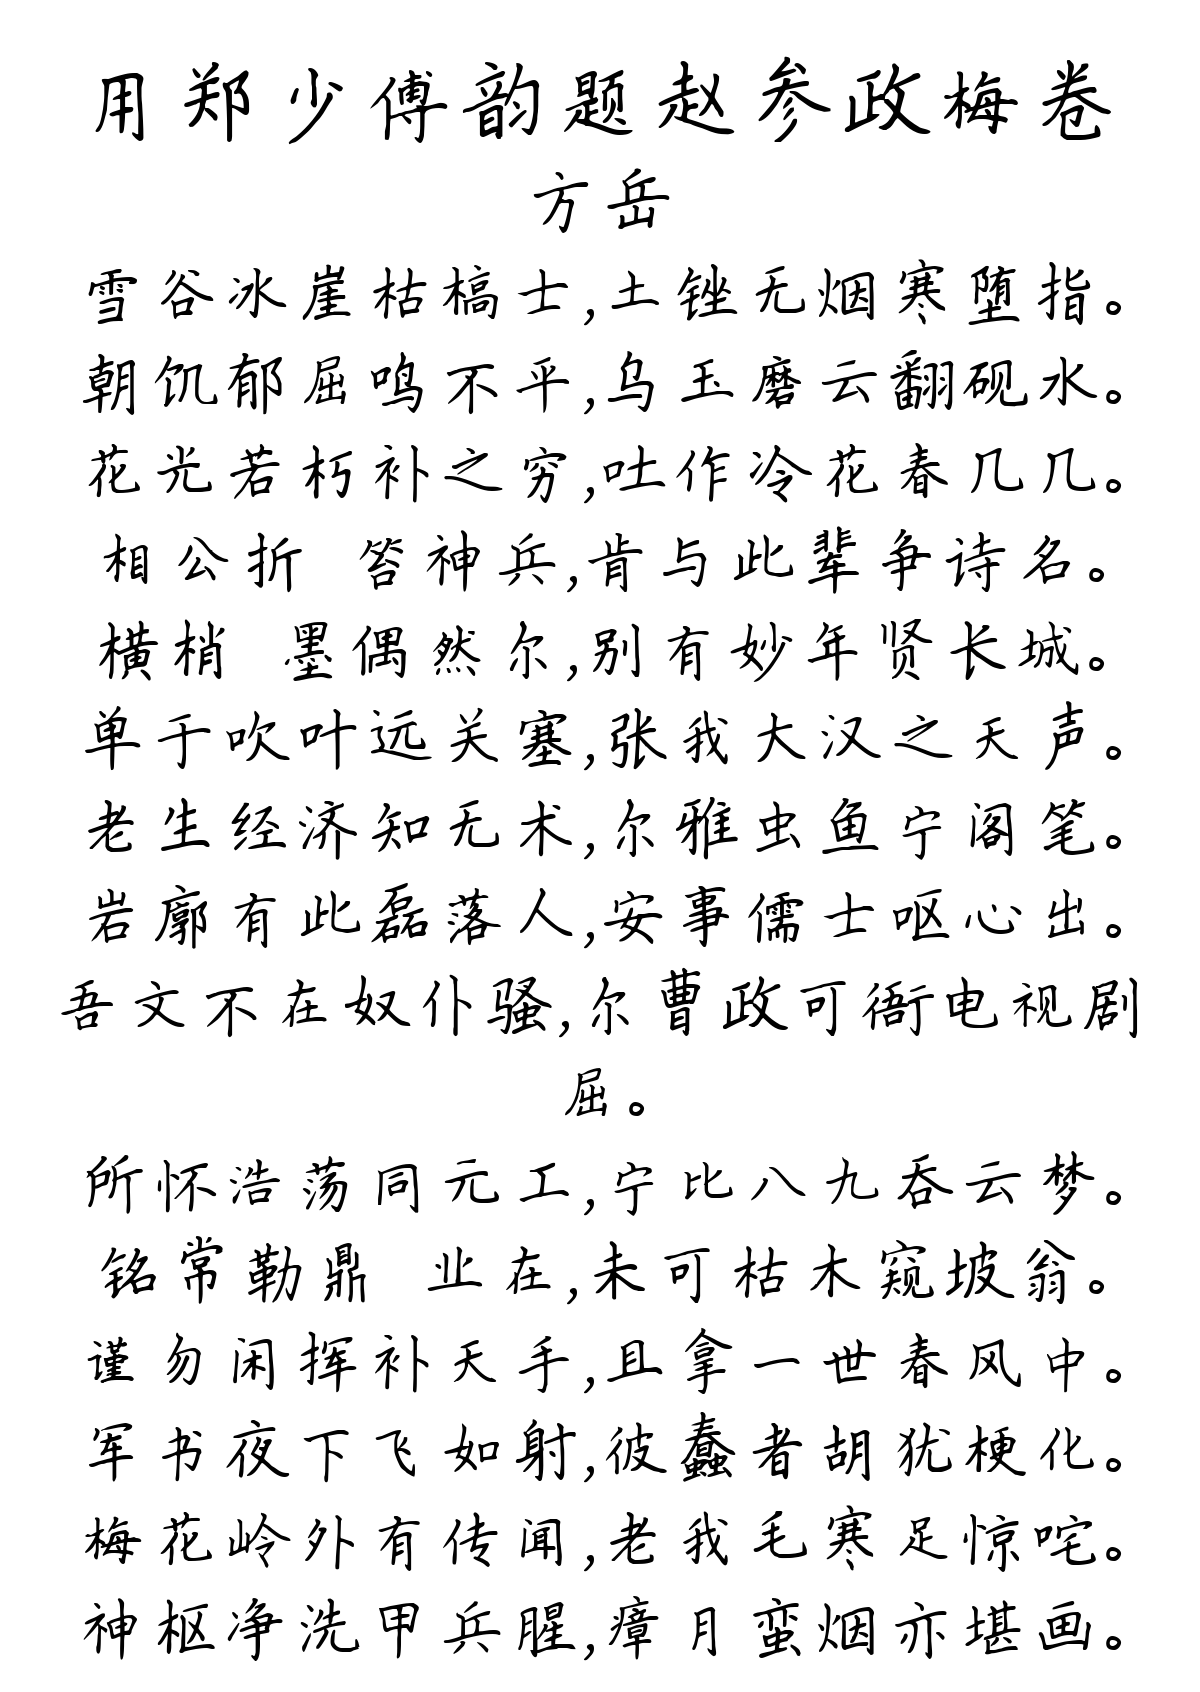 用郑少傅韵题赵参政梅卷
方岳
雪谷冰崖枯槁士,土锉无烟寒堕指。
朝饥郁屈鸣不平,乌玉磨云翻砚水。
花光若朽补之穷,吐作冷花春几几。
相公折 笞神兵,肯与此辈争诗名。
横梢 墨偶然尔,别有妙年贤长城。
单于吹叶远关塞,张我大汉之天声。
老生经济知无术,尔雅虫鱼宁阁笔。
岩廓有此磊落人,安事儒士呕心出。
吾文不在奴仆骚,尔曹政可衙电视剧
屈。
所怀浩荡同元工,宁比八九吞云梦。
铭常勒鼎 业在,未可枯木窥坡翁。
谨勿闲挥补天手,且拿一世春风中。
军书夜下飞如射,彼蠢者胡犹梗化。
梅花岭外有传闻,老我毛寒足惊咤。
神枢净洗甲兵腥,瘴月蛮烟亦堪画。